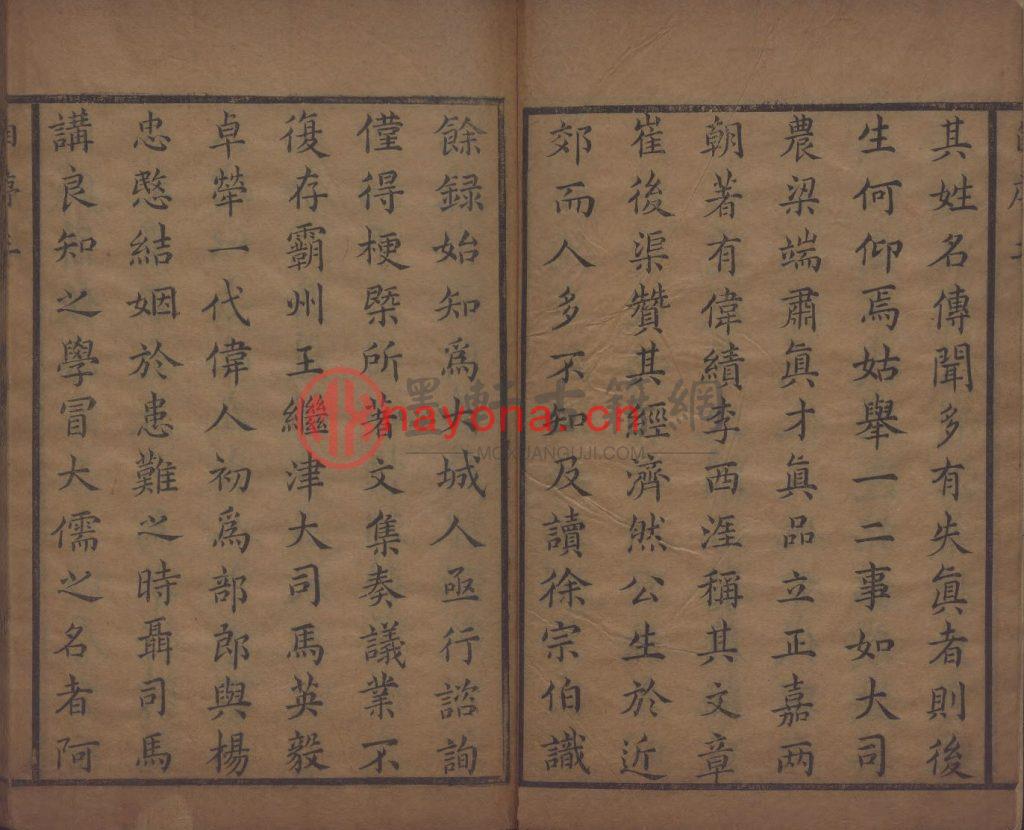 其姓名傳聞多有失眞者則後
生何仰焉姑舉一二事如大司
農梁端肅眞才眞品立正嘉两
朝著有偉績李西涯稱其文章
崔後渠贊其經濟然公生於近
郊而人多不知及讀徐宗伯識
餘録始知爲大城人亟行諮詢
僅得梗槩所著文集奏議業不
復存霸州王繼津大司馬英毅
卓犖一代偉人初爲部郎與楊
忠愍結姻於患難之時聶司馬
講良知之學冒大儒之名者阿
墨軒古籍網
nayona.cn
MOXUANGUJI.COM